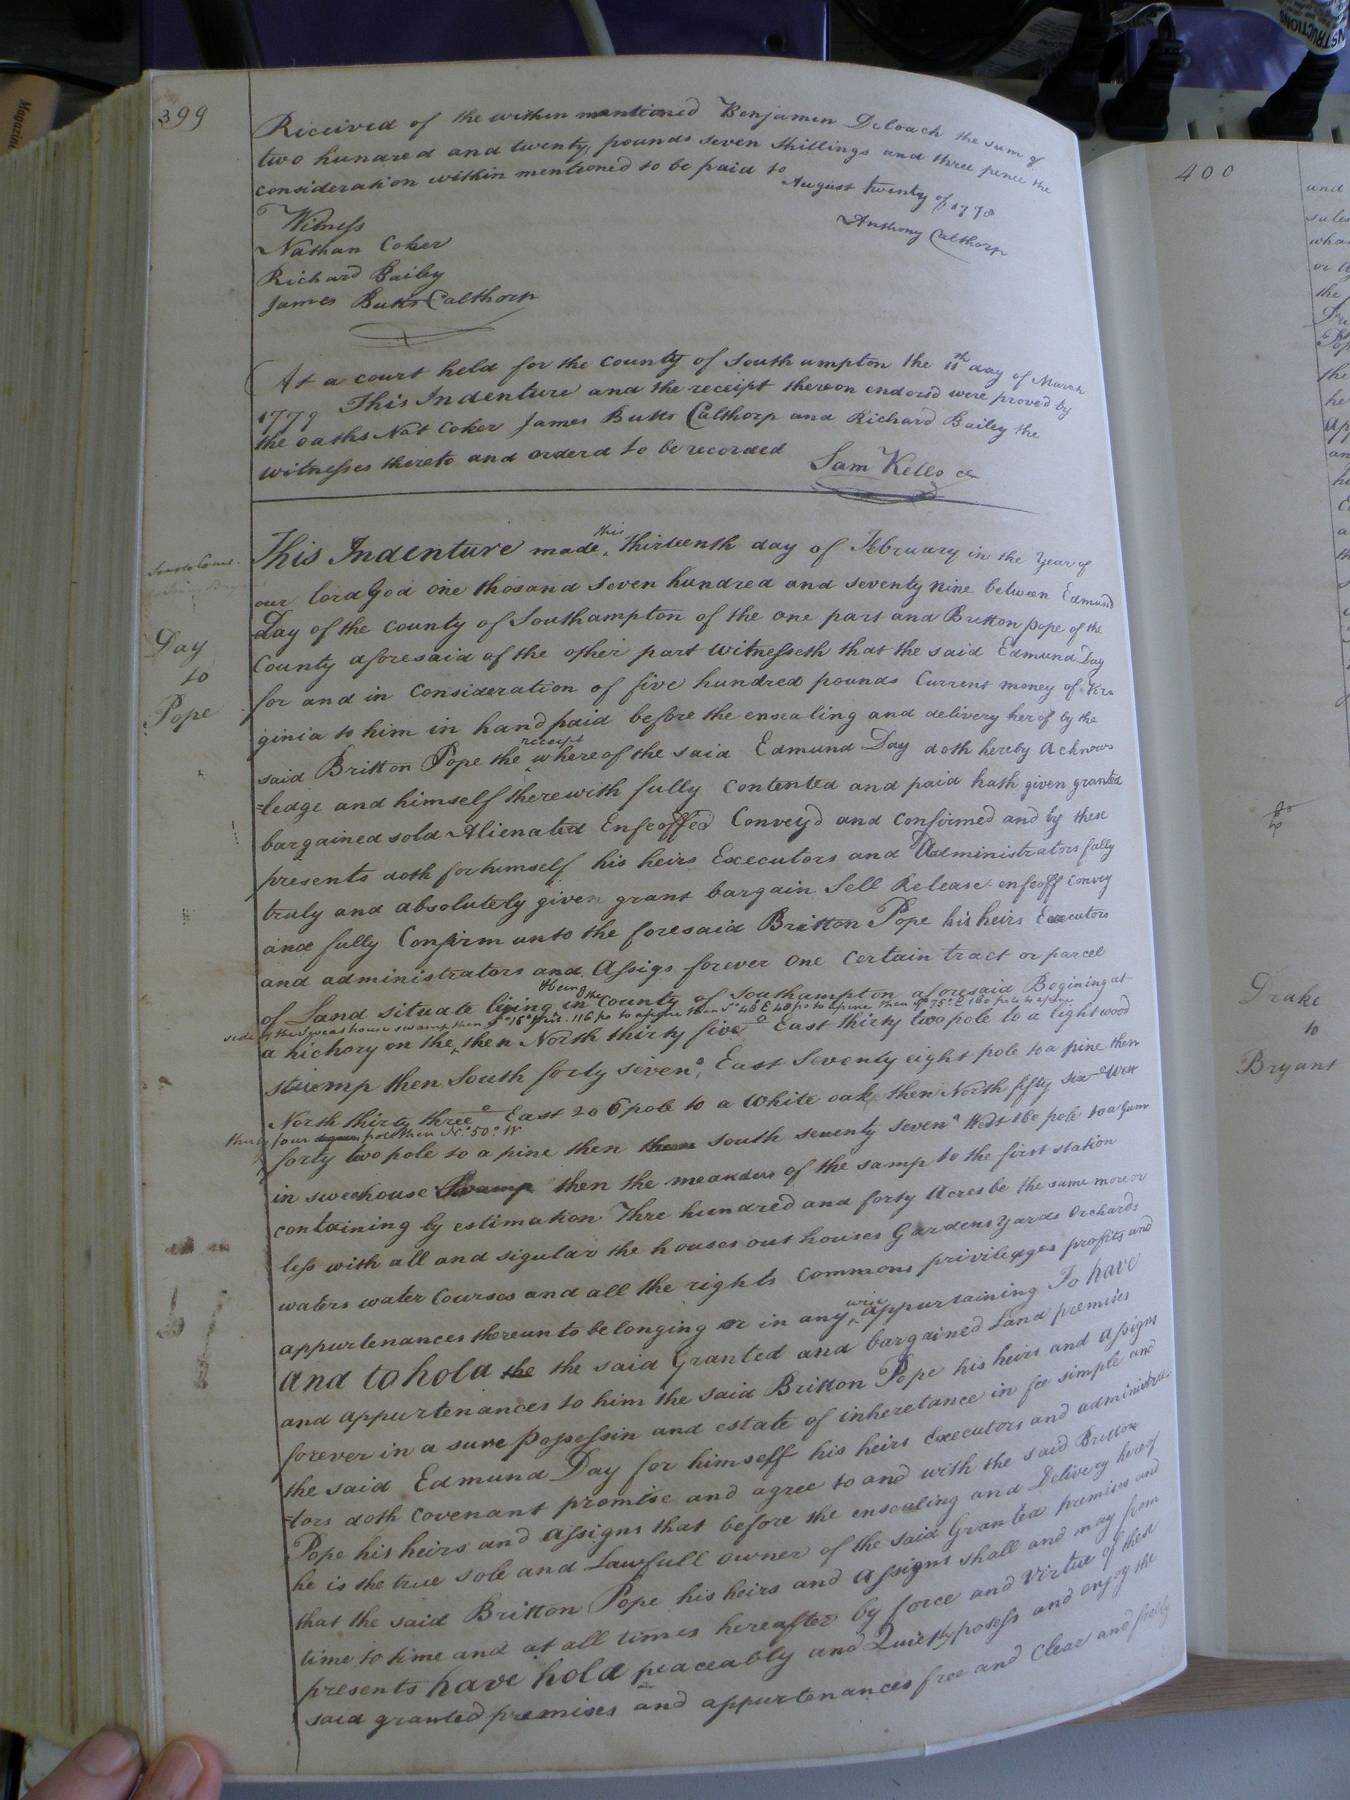 399
Received of the within mentioned Benjamin Deloach the sum of
two hundred and twenty pounds seven shillings and three pence the
consideration within mentioned to be paid to
August twenty of 1778
Witness
Anthony Calthorp
Nathan Coker
Richard Bailey
James Butts Calthorp
At a court held for the county of Southampton the 11th day of March
1779 This Indenture and the receipt thereon endorsd were proved by
the oaths Nat Coker James Butts Calthorp and Richard Bailey the
witnesses thereto and orderd to be recorded
Sam Kello
Day
to
Pope
This Indenture made this thirteenth day of February in the Year of
our lord God one thosand seven hundred and seventy nine between Edmund
Day of the county of Southampton of the one part and Britton Pope of the
County aforesaid of the other part Witnesseth that the said Edmund Day
for and in Consideration of five hundred pounds Current money of Vir
ginia to him in hand paid before the ensealing and delivery herof by the
said Britton Pope the receipt whereof the said Edmund Day doth hereby Acknow
=ledge and himself therewith fully Contented and paid hath given granted
bargained sold Alienated Enfeoffed Convey'd and Confirmed and by these
presents doth for himself his heirs Executors and Administrators fully
truly and absolutely given grant bargain Sell Release enfeoff Convey
and fully Confirm unto the foresaid Britton Pope his heirs Executors
and administrators and Assigs forever One Certain tract or parcel
of Land situate lying & being in the County of Southampton aforesaid Begining at
a hickory on the side of the Sweathouse swamp then 116 po to a pine then So 48 E 40 po to a pine then 75° E 160 pole to
then North thirty five° East thirty two pole to a lightwood
stump then South forty seven° East Seventy eight pole to a pine then
North thirty three° East 206 pole to a White oak then North fifty six° West
thirty four pole then No 50° W
forty two pole to a pine then then south seventy seven° West 160 pole to a Gum
in sweehouse Swamp then the meanders of the samp to the first station
containing by estimation Thre hundred and forty Acres be the same more or
less with all and sigular the houses out houses Gardens yards Orchards
waters water Courses and all the rights Commons privileges profits and
appurtenances thereunto belonging or in any wise appurtaining To have
and to hold the the said Granted and bargained Land premises
and appurtenances to him the said Britton Pope his heirs and Assigns
forever in a sure possessin and estate of inheretance in fee simple and
the said Edmund Day for himself his heirs Executors and administra
=tors doth Covenant promise and agree to and with the said Britton
Pope his heirs and Assigns that before the ensealing and Delivery hereof
he is the true sole and Lawfull owner of the said Granted premises and
that the said Britton Pope his heirs and Assigns shall and may from
time to time and at all times hereafter by force and Virtue of these
presents have hold peaceably and Quietly posess and enjoy the
said granted premises and appurtenances free and Clear and freely
400
Drake
to
Bryant
INSTRUCTIONS
Magazine